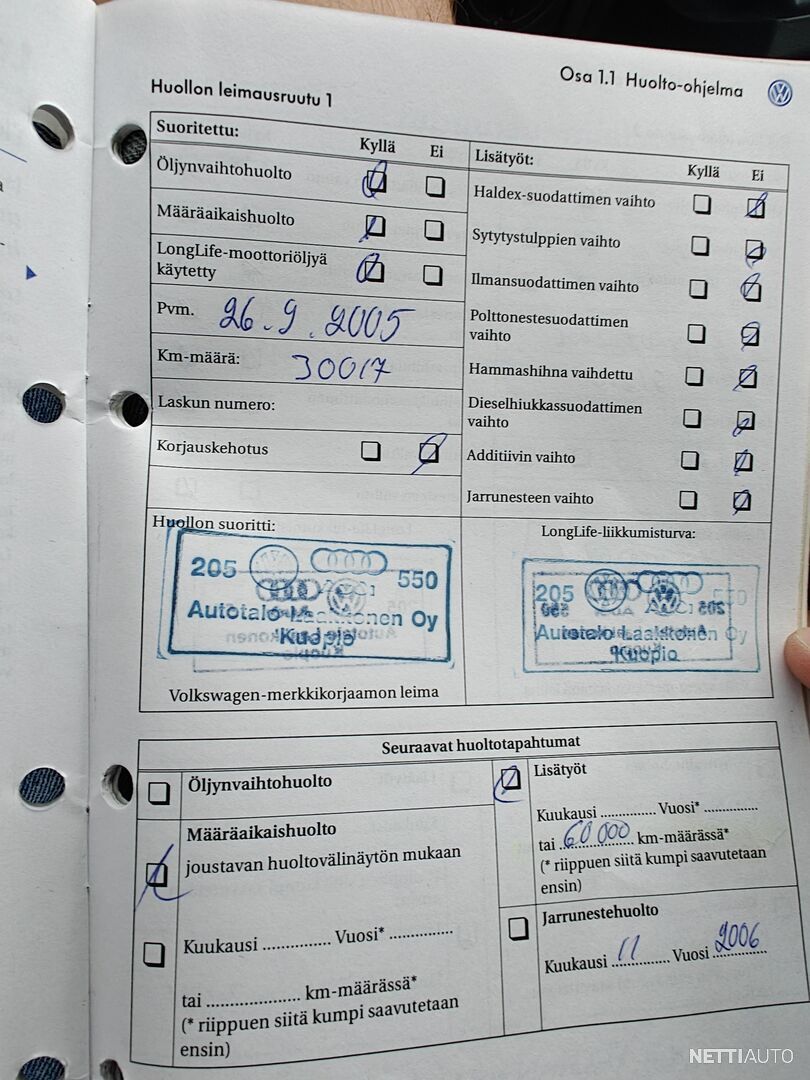 Osa 1.1 Huolto-ohjelma
Huollon leimausruutu 1
Suoritettu:
Kyllä Ei
Öljynvaihtohuolto
Määräaikaishuolto
LongLife-moottoriöljyä
käytetty
Pvm. 26.9.2005
Km-määrä: 30017
Laskun numero:
Korjauskehotus
Lisätyöt:
Kyllä Ei
Haldex-suodattimen vaihto
Sytytystulppien vaihto
Ilmansuodattimen vaihto
Polttonestesuodattimen
vaihto
Hammashihna vaihdettu
Dieselhiukkassuodattimen
vaihto
Additiivin vaihto
Jarrunesteen vaihto
Huollon suoritti:
205 550
Autotalo Laakkonen Oy
Kuopio
Volkswagen-merkkikorjaamon leima
LongLife-liikkumisturva:
205 550
Autotalo Laakkonen Oy
Kuopio
Seuraavat huoltotapahtumat
Öljynvaihtohuolto
Määräaikaishuolto
joustavan huoltovälinäytön mukaan
Kuukausi ............... Vuosi* ..............
tai ..................... km-määrässä*
(* riippuen siitä kumpi saavutetaan
ensin)
Lisätyöt
Kuukausi ............. Vuosi* .............
tai 60 000 km-määrässä*
(* riippuen siitä kumpi saavutetaan
ensin)
Jarrunestehuolto
Kuukausi 11 Vuosi 2006
NETTIAUTO